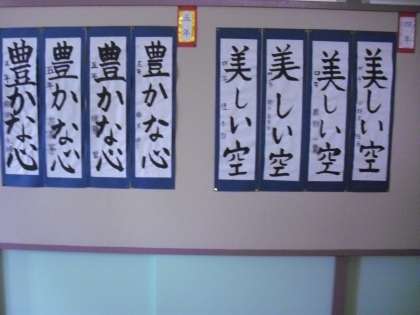 四年
美しい空
美しい空
美しい空
美しい空
五年
豊かな心
豊かな心
豊かな心
豊かな心